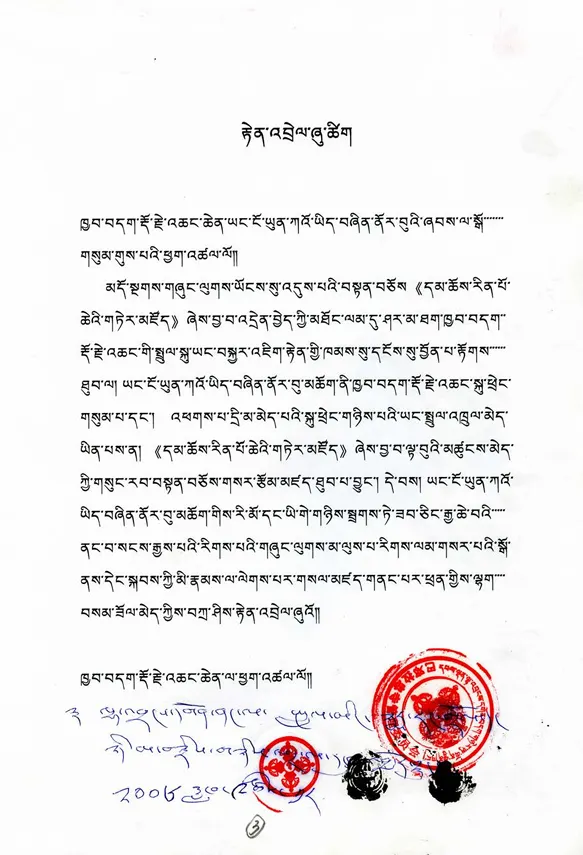 རྟེན་འབྲེལ་ཞུ་ཚིག
ཁྱབ་བདག་རྡོ་རྗེ་འཆང་ཆེན་ཡང་ངོ་ཡུན་ཀའོ་ཡིད་བཞིན་ནོར་བུའི་ཞབས་ལ་སྒོ་་་་་་
གསུམ་གུས་པའི་ཕྱག་འཚལ་ལོ།།
མདོ་སྔགས་གཞུང་ལུགས་ཡོངས་སུ་འདུས་པའི་བསྟན་བཅོས 《དམ་ཆོས་རིན་པོ་
ཆེའི་གཏེར་མཛོད》 ཞེས་བྱ་བ་འདྲེན་བྱེད་ཀྱི་མཐོང་ལམ་དུ་ཤར་མ་ཐག་ཁྱབ་བདག་་
རྡོ་རྗེ་འཆང་གི་སྤྲུལ་སྐུ་ཡང་བསྐྱར་འཇིག་རྟེན་གྱི་ཁམས་སུ་དངོས་སུ་བྱོན་པ་རྟོགས་་་་་
ཐུབ་ལ། ཡང་ངོ་ཡུན་ཀའོ་ཡིད་བཞིན་ནོར་བུ་མཆོག་ནི་ཁྱབ་བདག་རྡོ་རྗེ་འཆང་སྐུ་ཕྲེང་
གསུམ་པ་དང་། འཕགས་པ་དྲི་མ་མེད་པའི་སྐུ་ཕྲེང་གཉིས་པའི་ཡང་སྤྲུལ་འཁྲུལ་མེད་
ཡིན་པས་ན། 《དམ་ཆོས་རིན་པོ་ཆེའི་གཏེར་མཛོད》 ཞེས་བྱ་བ་ལྟ་བུའི་མཚུངས་མེད་
ཀྱི་གསུང་རབ་བསྟན་བཅོས་གསར་རྩོམ་མཛད་ཐུབ་པ་བྱུང་། དེ་བས། ཡང་ངོ་ཡུན་ཀའོ་
ཡིད་བཞིན་ནོར་བུ་མཆོག་གིས་རི་མོ་དང་ཡི་གེ་གཉིས་སྤྲགས་ཏེ་ཟབ་ཅིང་རྒྱ་ཆེ་བའི་་་་་
ནང་བ་སངས་རྒྱས་པའི་རིགས་པའི་གཞུང་ལུགས་མ་ལུས་པ་རིགས་ལམ་གསར་པའི་སྒོ་
ནས་དེང་སྐབས་ཀྱི་མི་རྣམས་ལ་ལེགས་པར་གསལ་མཛད་གནང་པར་ཕྲན་གྱིས་ལྷག་་་་
བསམ་ཟོལ་མེད་ཀྱིས་བཀྲ་ཤིས་རྟེན་འབྲེལ་ཞུའོ།།
ཁྱབ་བདག་རྡོ་རྗེ་འཆང་ཆེན་ལ་ཕྱག་འཚལ་ལོ།།
3